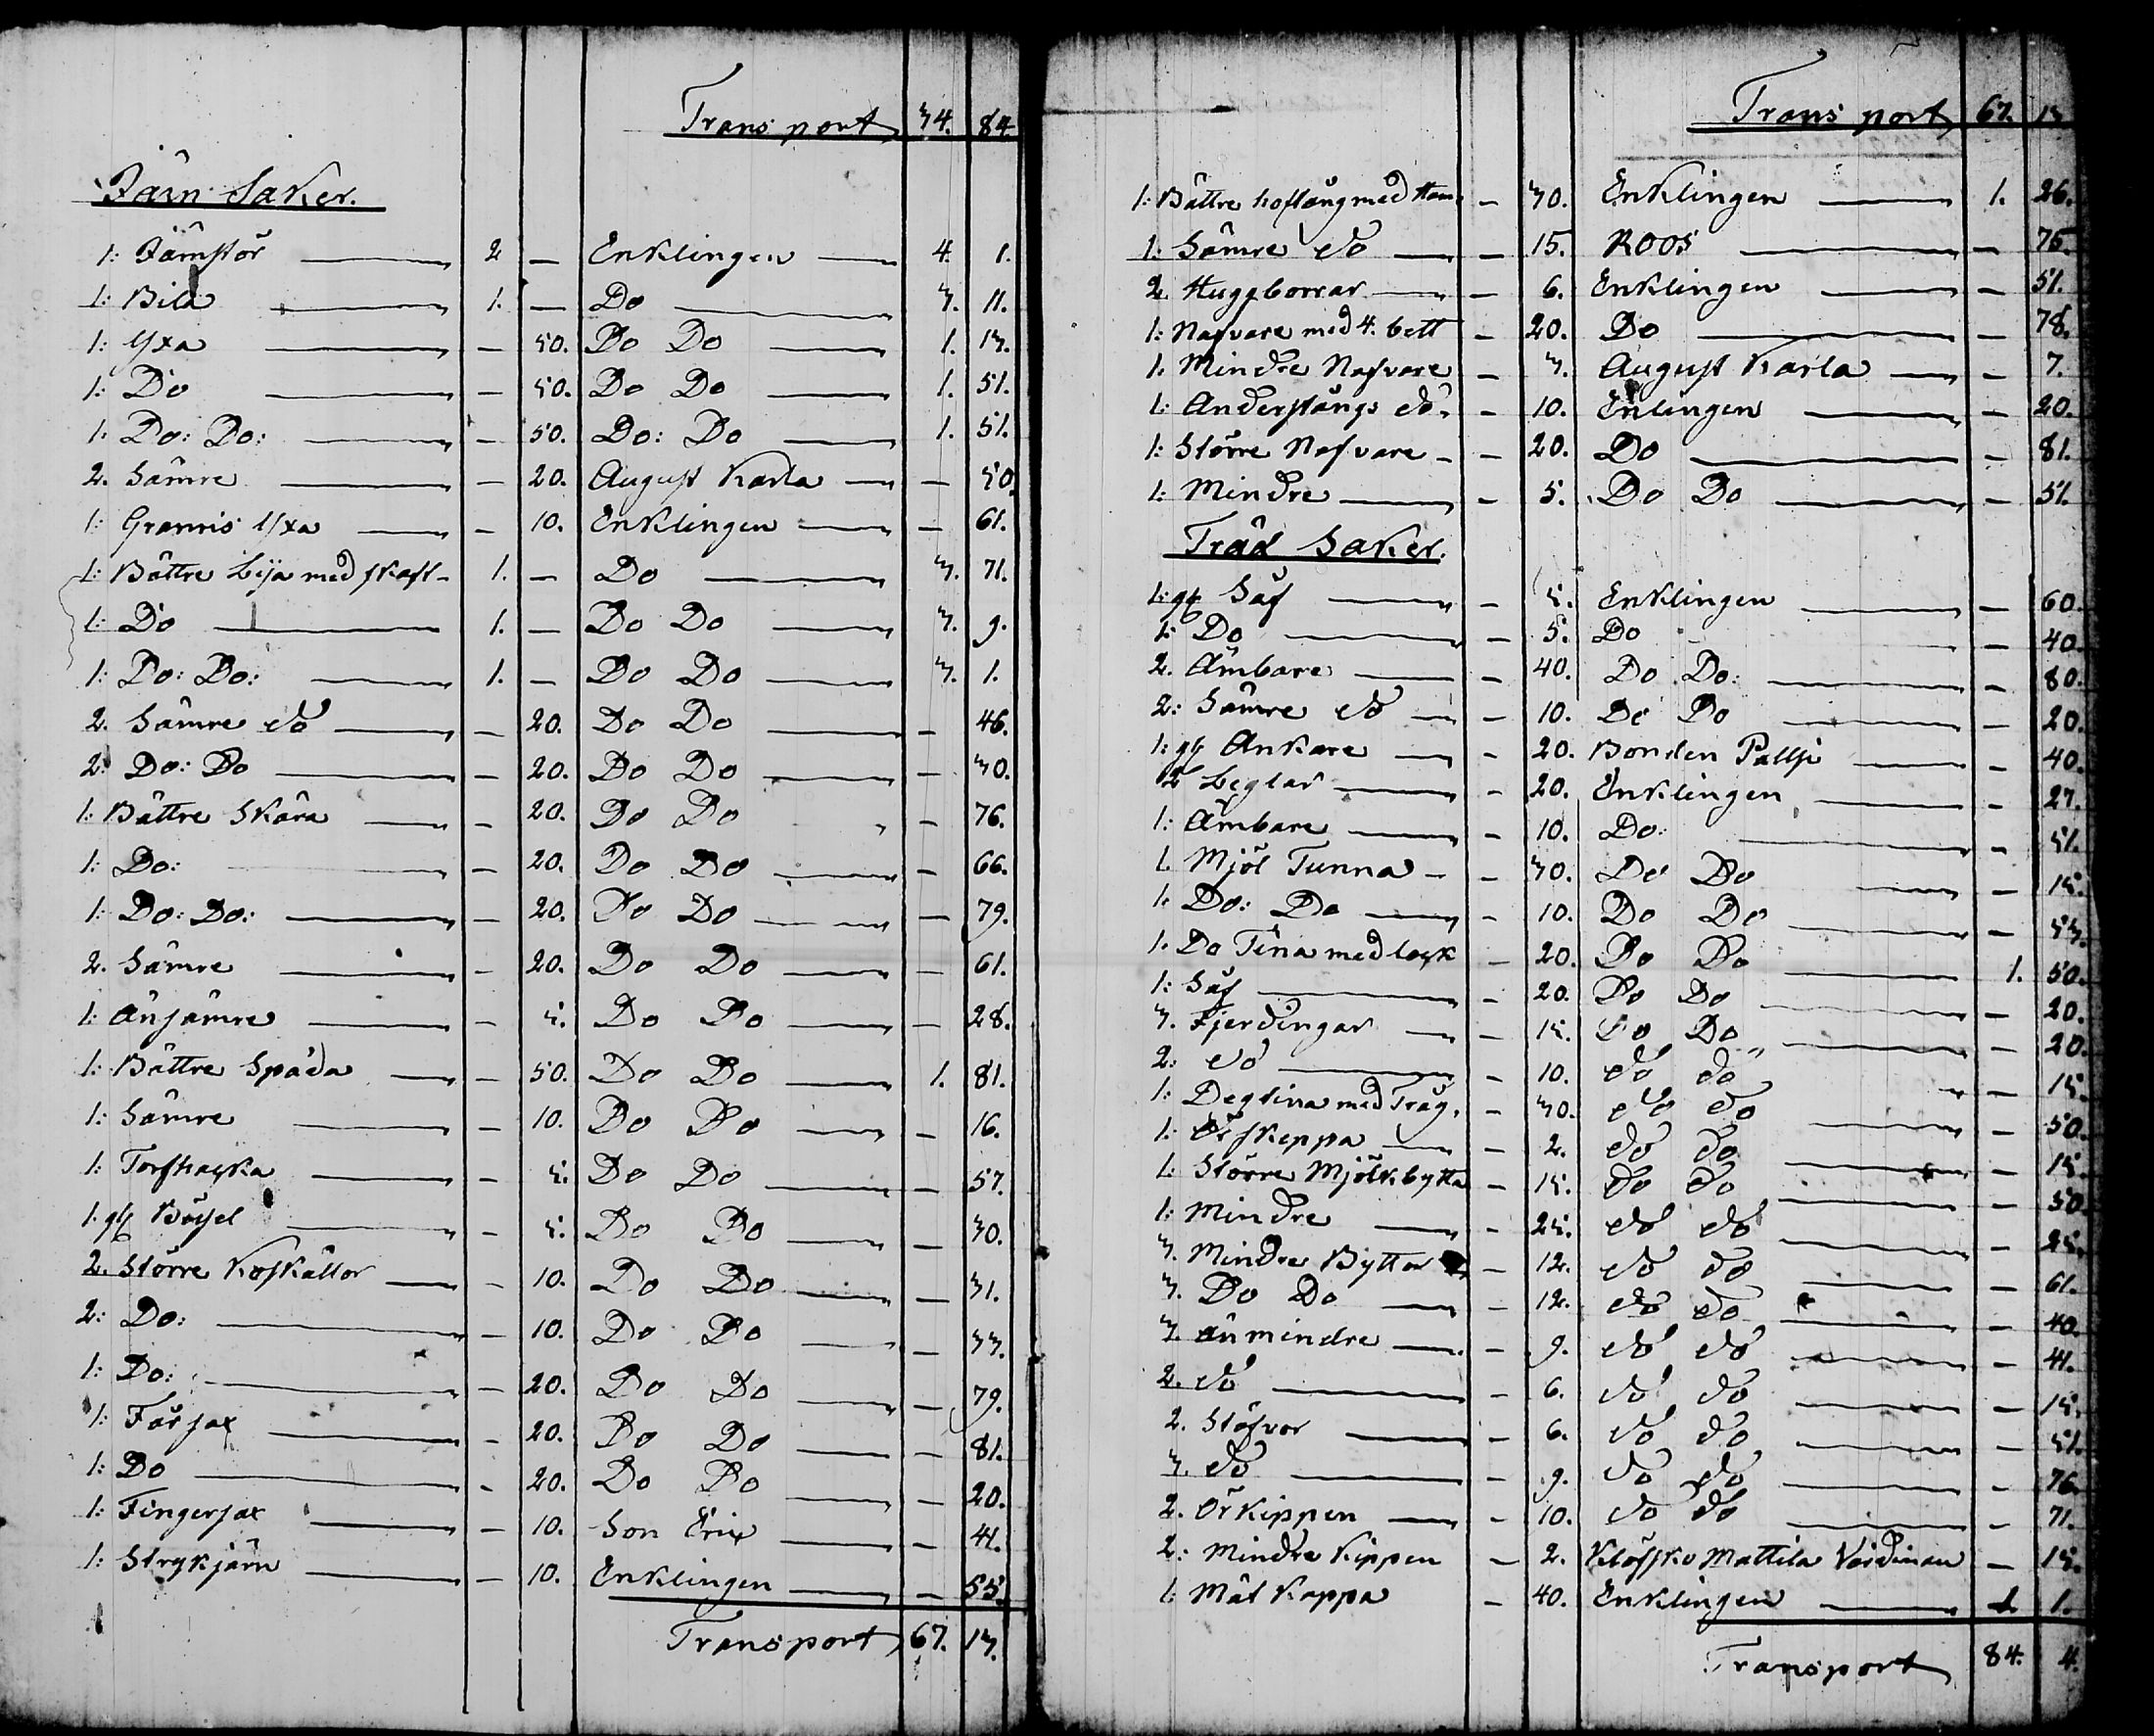 Transport 34. 84
Järn Saker.
1: Järnstör 2 — Enklingen 4. 1.
1: Bila 1. — Do 3. 11.
1: Yxa — 50. Do Do 1. 13.
1: Do — 50. Do Do 1. 51.
1: Do: Do: — 50. Do: Do 1. 51.
2. Sämre — 20. August Karla — 50.
1: Granris Yxa — 10. Enklingen — 61.
1: Bättre Lija med skaft - 1. — Do 3. 71.
1: Do 1. — Do Do 3. 9.
1: Do: Do: 1. — Do Do 3. 1.
2. Sämre do — 20. Do Do — 46.
2: Do: Do — 20. Do Do — 30.
1: Bättre Skära — 20. Do Do — 76.
1: Do: — 20. Do Do — 66.
1: Do: Do: — 20. Do Do — 79.
2. Sämre — 20. Do Do — 61.
1: änsämre — 5. Do Do — 28.
1: Bättre Spada — 50. Do Do 1. 81.
1: Sämre — 10. Do Do — 16.
1: Torfhacka — 5. Do Do — 57.
1. gl Böijel — 5. Do Do — 30.
2. Större Koskällor — 10. Do Do — 31.
2: Do: — 10. Do Do — 33.
1: Do: — 20. Do Do — 79.
1: Fårsax — 20. Do Do — 81.
1: Do — 20. Do Do — 20.
1: Fingersax — 10. Son Eric — 41.
1: Strykjärn — 10. Enklingen — 55.
Transport 67. 13.
Transport 67. 13
1: Bättre hoftång med Ham — 30. Enklingen 1. 26.
1: Sämre do — 15. Roos — 75.
2. Huggborrar — 6. Enklingen — 51.
1: Nafvare med 4. bett — 20. Do — 78.
1. Mindre Nafvare — 3. August Karla — 7.
1: Anderstångs do — 10. Enlingen — 20.
1: Större Nafvare — 20. Do — 81.
1: Mindre — 5. Do Do — 51.
Träd Saker.
1: gl Såf — 5. Enklingen — 60.
1: Do — 5. Do — 40.
2. Ämbare — 40. Do Do: — 80.
2: Sämre do — 10. Do Do — 20.
1: gl Ankare — 20. Bonden Pallsi — 40.
2 Leglar — 20. Enklingen — 27.
1: Ämbare — 10. Do: — 51.
1. Mjöl Tunna — 30. Do Do — 15.
1. Do: Do — 10. Do Do — 53.
1. Do Tina med lock — 20. Do Do 1. 50.
1: Såf — 20. Do Do — 20.
3. Fjerdingar — 15. Do Do — 20.
2: do — 10. do do — 15.
1: Degtina med Tråg. — 30. do do — 50.
1: skeppa — 2. do do — 15.
1. Större Mjölkbytta — 15. do do — 50
1: Mindre — 25. do do — 25.
3. Mindre Byttor — 12. do do — 61.
3. Do Do — 12. do do — 40.
3. änmindre — 9. do do — 41.
2. do — 6. do do — 15.
2. Stäfvor — 6. do do — 51.
3. do — 9. do do — 76.
2. Örkippen — 10. do do — 71.
2: Mindre Kippen — 2. Mattila — 15.
1. Mål Kappa — 40. Enklingen 1. 1.
Transport 84. 4.